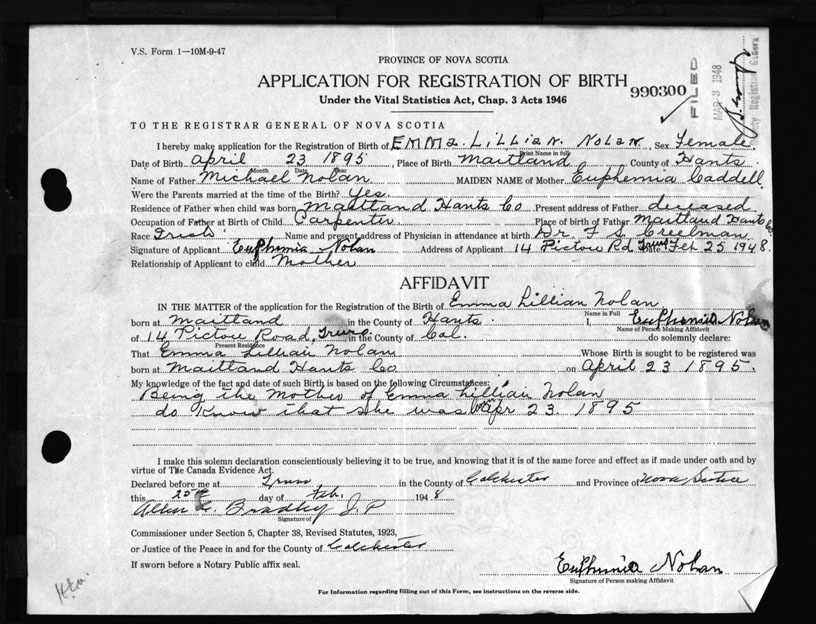 V.S. Form 1—10M-9-47
PROVINCE OF NOVA SCOTIA
APPLICATION FOR REGISTRATION OF BIRTH
990300
FILED
MAR 3 1948
Under the Vital Statistics Act, Chap. 3 Acts 1946
TO THE REGISTRAR GENERAL OF NOVA SCOTIA
I hereby make application for the Registration of Birth of EMMA. LiLLiaN. NoLaN. , Sex Female.
Print Name in full
Date of Birth April 23 1895 , Place of Birth Maitland County of Hants.
Month Date Year
Name of Father Michael Nolan MAIDEN NAME of Mother Euphemia Caddell
Were the Parents married at the time of the Birth? Yes.
Residence of Father when child was born Maitland Hants Co Present address of Father diseased
Occupation of Father at Birth of Child Carpenter Place of birth of Father Maitland Hants Co
Race Irish Name and present address of Physician in attendance at birth Dr. F S Creelman
Signature of Applicant Euphimia Nolan Address of Applicant 14 Pictou Rd Truro Date Feb 25 1948.
Relationship of Applicant to child Mother
AFFIDAVIT
IN THE MATTER of the application for the Registration of the Birth of Emma Lillian Nolan
Name in Full
born at Maitland in the County of Hants. I, Euphimia Nolan
Name of Person Making Affidavit
of 14 Pictou Road, Truro in the County of Col. do solemnly declare:
Present Residence
That Emma Lillian Nolan Whose Birth is sought to be registered was
born at Maitland Hants Co on April 23 1895.
My knowledge of the fact and date of such Birth is based on the following Circumstances:
Being the Mother of Emma Lillian Nolan
do Know that she was born Apr 23. 1895
I make this solemn declaration conscientiously believing it to be true, and knowing that it is of the same force and effect as if made under oath and by
virtue of The Canada Evidence Act.
Declared before me at Truro in the County of Colchester and Province of Nova Scotia
this 25th day of Feb. 1948
Bradley J.P
Signature of
Commissioner under Section 5, Chapter 38, Revised Statutes, 1923,
or Justice of the Peace in and for the County of Colchester
If sworn before a Notary Public affix seal.
Euphimia Nolan
Signature of Person making Affidavit
For Information regarding filling out of this Form, see instructions on the reverse side.